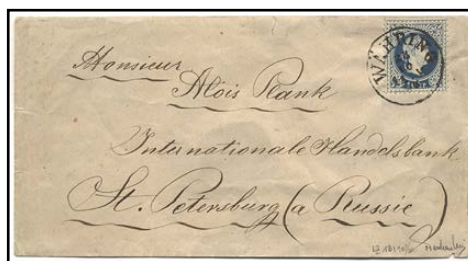 WÄHRING
Monsieur
Alois Plank
Internationale Handelsbank
St. Petersburg (a Russie)